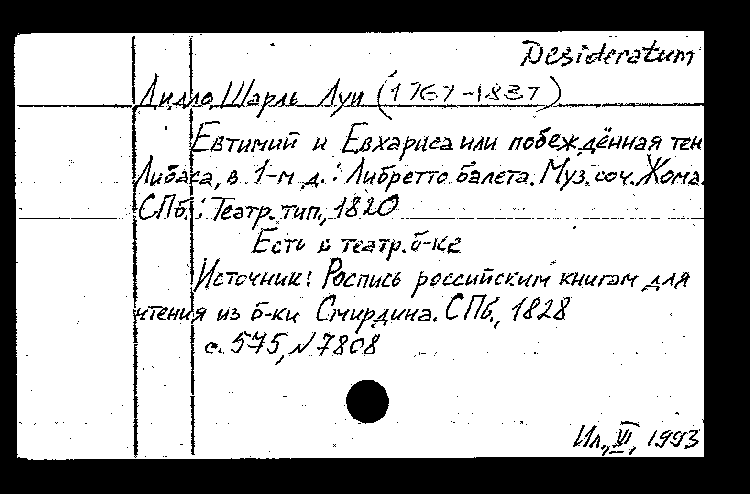 Desideratum
Дидло Шарль Луи (1767-1837)
Евтимий и Евхариса или побеждённая тен
Либаса, в 1-м д. : Либретто балета. Муз. соч. Жома.
СПб. : Театр. тип., 1820
Есть в театр. б-ке
Источник: Роспись российским книгам для
чтения из б-ки Смирдина. СПб., 1828
с. 575, N 7808
Ил., VI, 1993